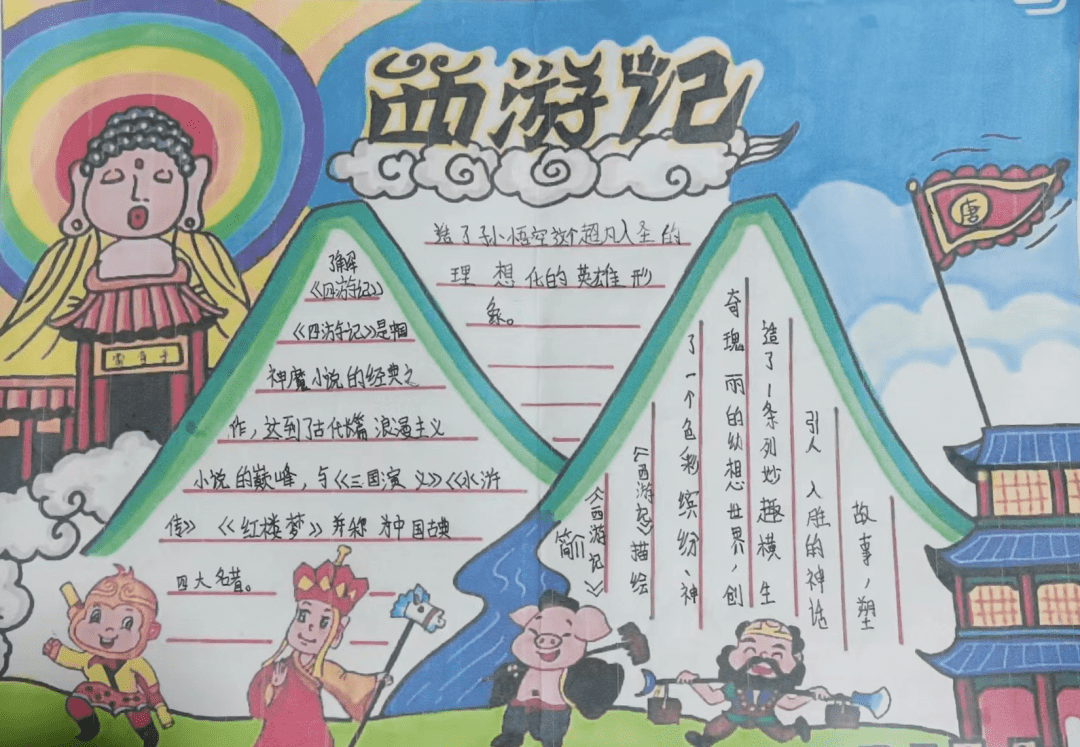 西游记
唐
雷音寺
了解
《西游记》
《西游记》是中国
神魔小说的经典之
作，达到了古代长篇浪漫主义
小说的巅峰，与《三国演义》《水浒
传》《红楼梦》并称为中国古典
四大名著。
《西游记》
简介
《西游记》描绘
了一个色彩缤纷、神
奇瑰丽的幻想世界，创
造了1条列妙趣横生
引人入胜的神话
故事，塑
造了孙悟空这个超凡入圣的
理想化的英雄形
象。